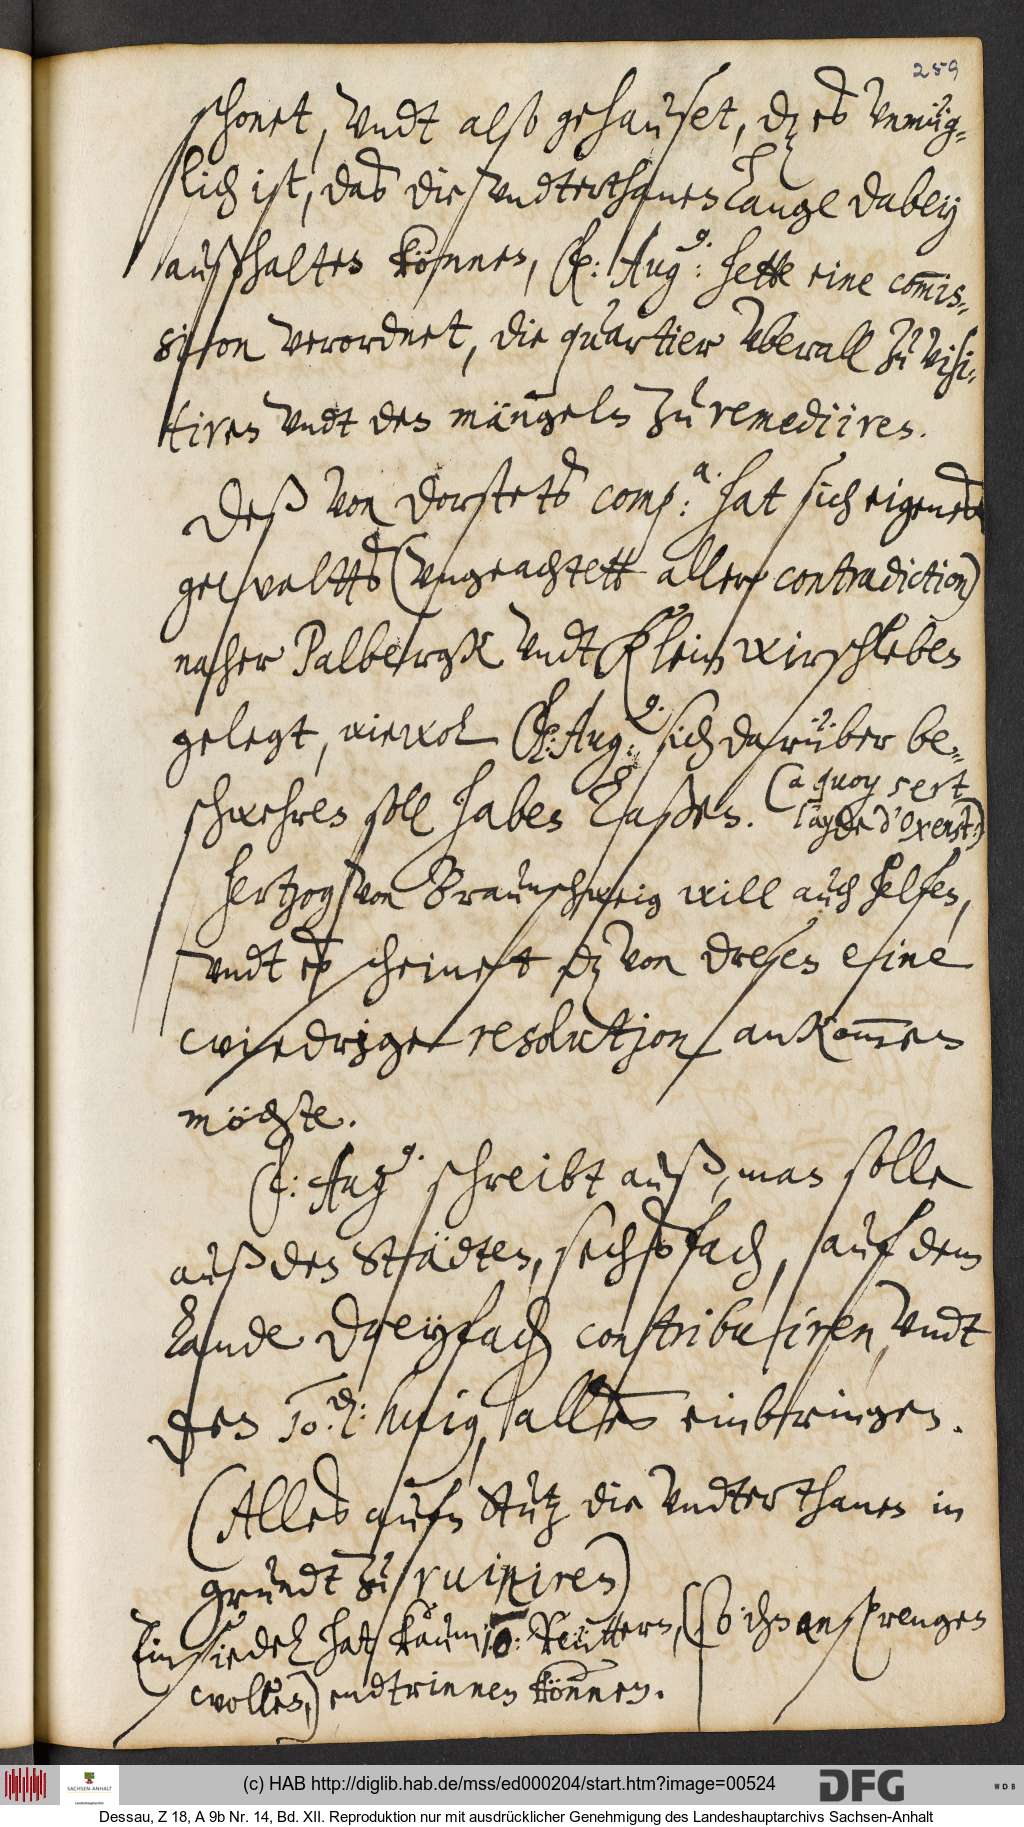 259
schonet, vndt also gehauset, dz es vnmüg-
lich ist, das die vndterthanen lange dabey
außhalten können, F: Aug: hette eine commis-
sion verordnet, die quartier vberall zu visi-
tiren vndt den mängeln zu remediiren.
Deß von Dorstets comp: hat sich eigenes
gewaltts (vngeachtett aller contradiction)
naher Palbergk vndt klein wirschleben
gelegt, wiewol F: Aug: sich darüber be-
schwehren soll haben laßen. (a quoy sert
l'ayde d'Oxenst:)
Hertzog von Braunschweig will auch helfen,
vndt es scheinet dz von dresen eine
wiedrige resolution ankommen
möchte.
F: Aug: schreibt auß, man solle
auß den Städten, sechsfach, auf dem
lande dreyfach contribuiren, vndt
den 10. huig, alles einbringen.
(Alles aufn Stutz die vndterthanen in
grundt zu ruiniren)
Einsiedel hat kaum 10: Reuttern, (so ihn ansprengen
wollen,) endtrinnen können.
(c) HAB http://diglib.hab.de/mss/ed000204/start.htm?image=00524
SACHSEN-ANHALT
DFG
WDB
Dessau, Z 18, A 9b Nr. 14, Bd. XII. Reproduktion nur mit ausdrücklicher Genehmigung des Landeshauptarchivs Sachsen-Anhalt